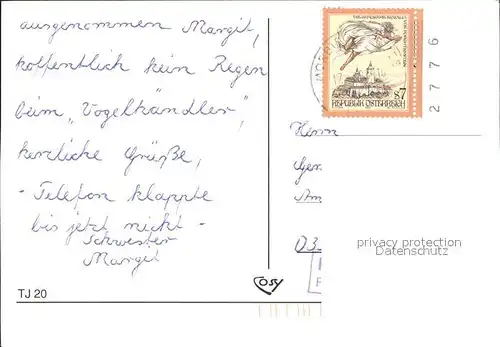 ausgenommen Margit,
hoffentlich kein Regen
beim "Vogelhändler",
herzliche Grüße,
- Telefon klappte
bis jetzt nicht -
Schwester
Margit
TJ 20
cosy
REPUBLIK ÖSTERREICH
S7
2776
Herrn
Ger
Am
D3
privacy protection
Datenschutz